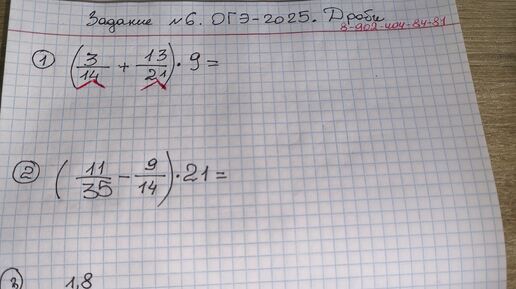 Задание №6. ОГЭ-2025. Дроби
8-902-404-84-81
1 (3/14 + 13/21) · 9 =
2 (11/35 - 9/14) · 21 =
3 1,8